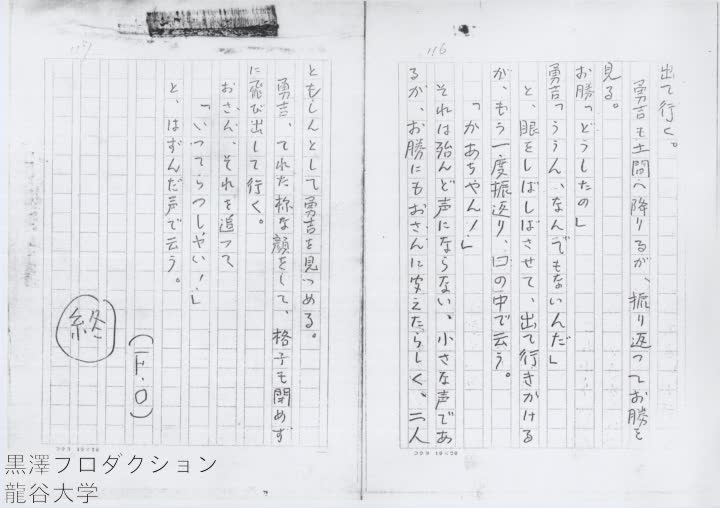 116
出て行く。
勇吉も土間へ降りるが、振り返つてお勝を
見る。
お勝「どうしたの」
勇吉「ううん、なんでもないんだ」
と、眼をしばしばさせて、出て行きかける
が、もう一度振返り、口の中で云う。
「かあちやん!」
それは殆んど声にならない。小さな声であ
るが、お勝にもおさんに聞えたらしく。二人
コクヨ 20×20
117
ともしんとして勇吉を見つめる。
勇吉、てれた様な顔をして、格子も閉めず
に飛び出して行く。
おさん、それを追つて
「いつてらつしやい!」
と、はずんだ声で云う。
(F・O)
終
コクヨ 20×20
黒澤プロダクション
龍谷大学